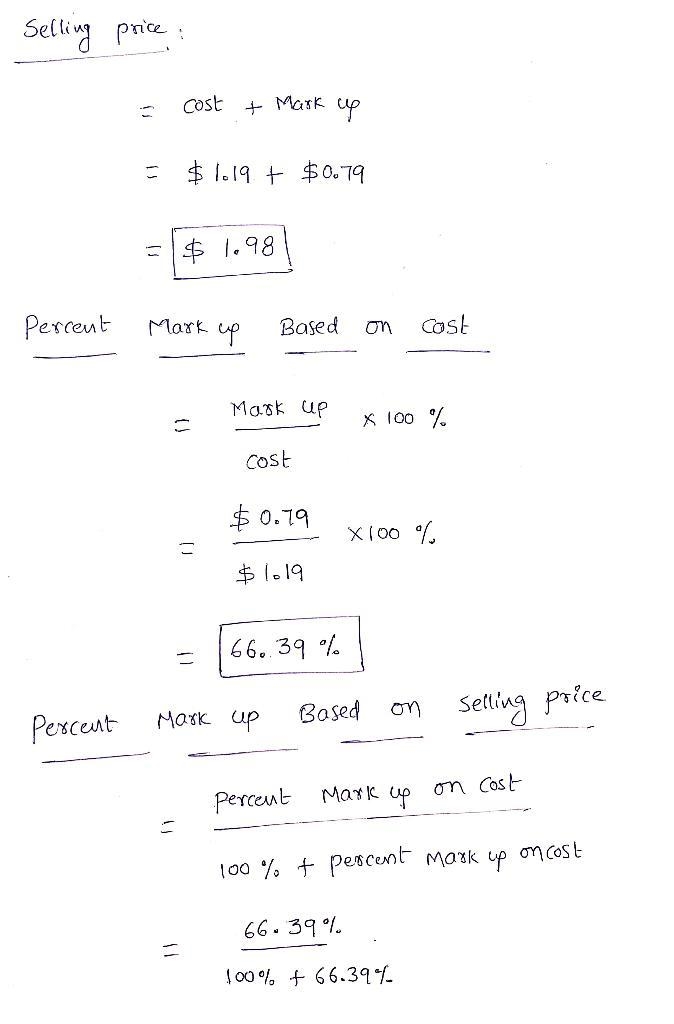 Selling price :
= cost + Mark up
= $ 1.19 + $0.79
= $ 1.98
Percent Mark up Based on cost
= Mark up / cost × 100 %
= $ 0.79 / $ 1.19 × 100 %
= 66.39 %
Percent Mark up Based on Selling price
= Percent Mark up on cost / 100 % + percent Mark up on cost
= 66.39% / 100% + 66.39%